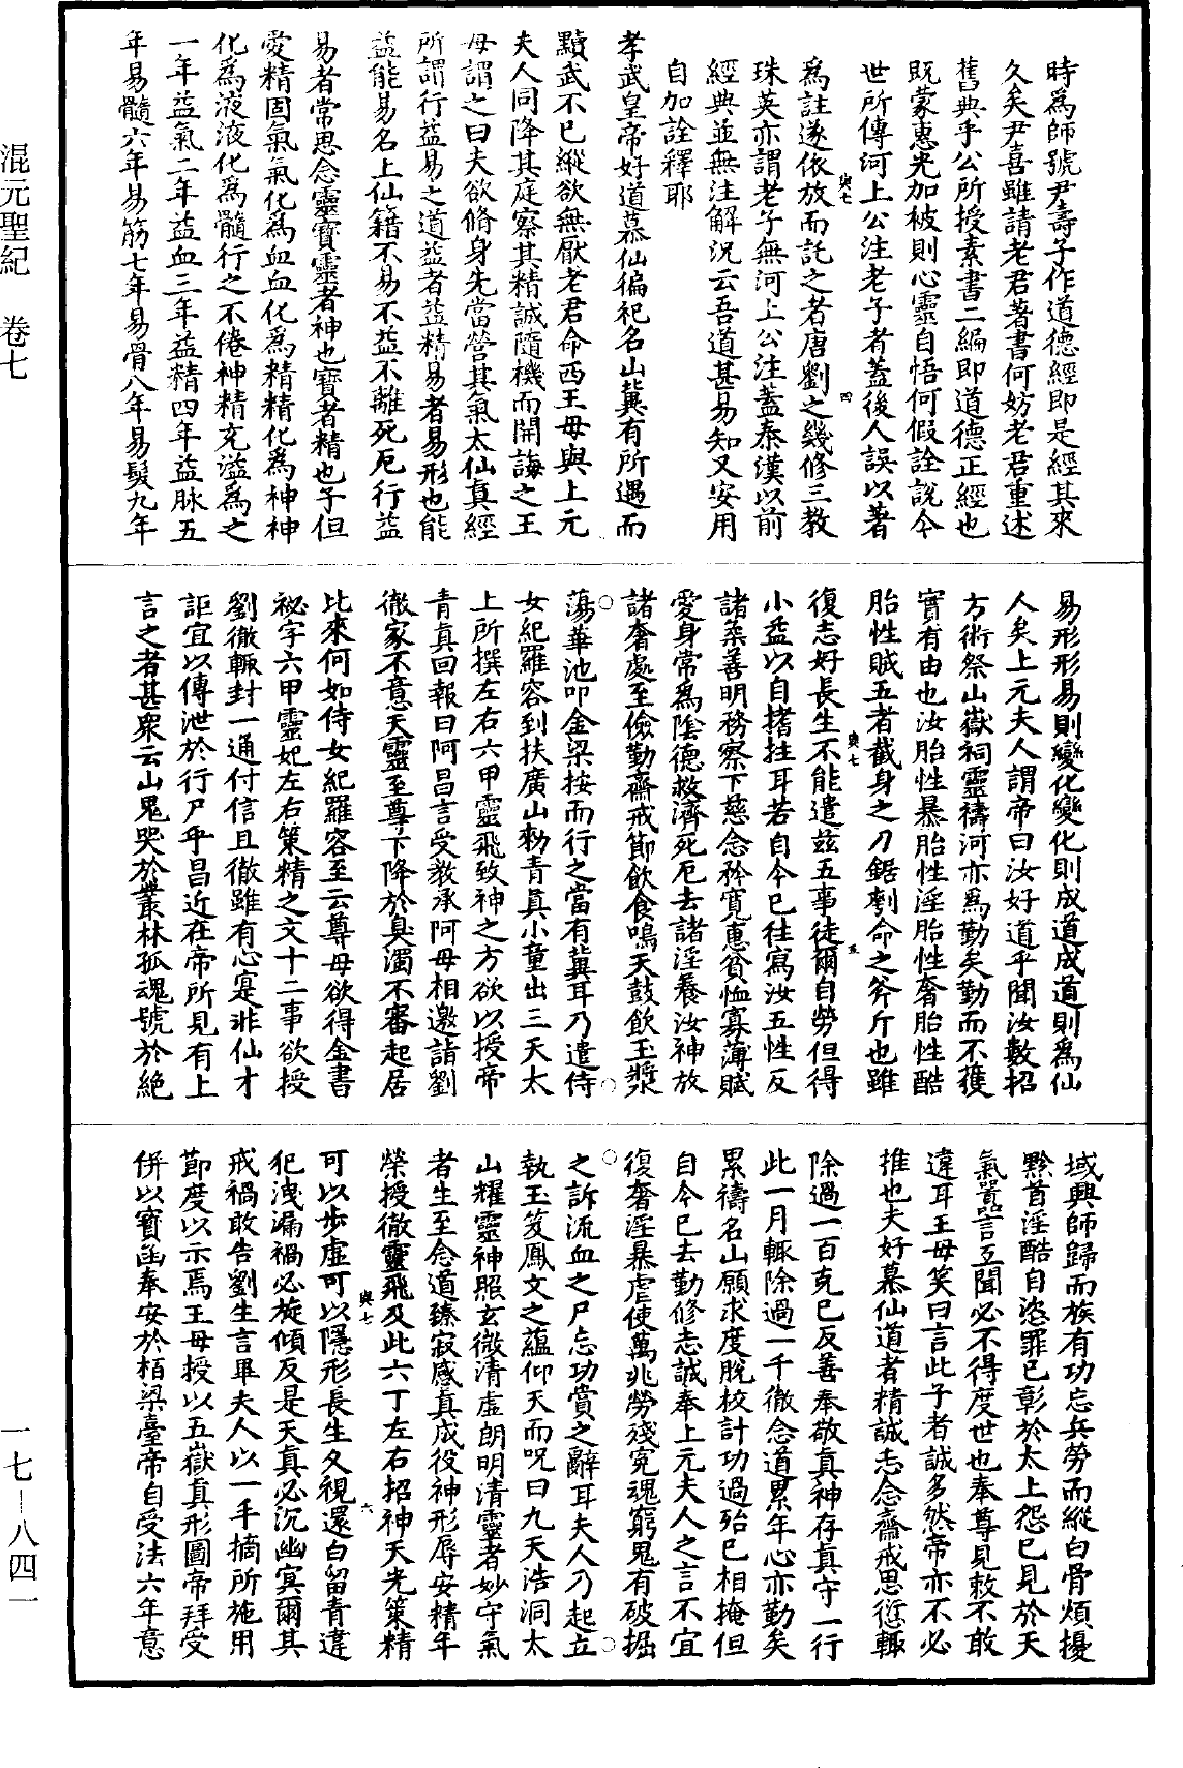 時爲師號尹壽子作道德經即是經其來
久矣尹喜雖請老君著書何妨老君重述
舊典乎公所授素書二編即道德正經也
既蒙惠光加被則心靈自悟何假詮說今
世所傳河上公注老子者蓋後人誤以著
爲註遂依放而託之者唐劉之幾修三教
珠英亦謂老子無河上公注蓋秦漢以前
經典並無注解況云吾道甚易知又安用
自加詮釋耶
孝武皇帝好道慕仙徧祀名山冀有所遇而
黷武不已縱欲無厭老君命西王母與上元
夫人同降其庭察其精誠隨機而開誨之王
母謂之曰夫欲脩身先當營其氣太仙真經
所謂行益易之道益者益精易者易形也能
益能易名上仙籍不易不益不離死厄行益
易者常思念靈寶靈者神也寶者精也子但
愛精固氣氣化爲血血化爲精精化爲神神
化爲液液化爲髓行之不倦神精充溢爲之
一年益氣二年益血三年益精四年益脉五
年易髓六年易筋七年易骨八年易髮九年
易形形易則變化變化則成道成道則爲仙
人矣上元夫人謂帝曰汝好道乎聞汝數招
方術祭山嶽祠靈禱河亦爲勤矣勤而不獲
實有由也汝胎性暴胎性淫胎性奢胎性酷
胎性賊五者截身之刀鋸刳命之斧斤也雖
復志好長生不能遣茲五事徒爾自勞但得
小益以自揩拄耳若自今已往寫汝五性反
諸柔善明務察下慈念矜寃惠貧恤寡薄賦
愛身常爲陰德救濟死厄去諸淫養汝神放
諸奢處至儉勤齋戒節飲食鳴天鼓飲玉漿
蕩華池叩金梁按而行之當有冀耳乃遣侍
女紀羅容到扶廣山勑青真小童出三天太
上所撰左右六甲靈飛致神之方欲以授帝
青真回報曰阿昌言受教承阿母相邀詣劉
徹家不意天靈至尊下降於臭濁不審起居
比來何如侍女紀羅容至云尊母欲得金書
祕字六甲靈妃左右策精之文十二事欲授
劉徹輒封一通付信且徹雖有心寔非仙才
詎宜以傳泄於行尸乎昌近在帝所見有上
言之者甚衆云山鬼哭於叢林孤魂號於絶
域興師歸而族有功忘兵勞而縱白骨煩擾
黔首淫酷自恣罪已彰於太上怨已見於天
氣囂言互聞必不得度世也奉尊見敕不敢
違耳王母笑曰言此子者誠多然帝亦不必
推也夫好慕仙道者精誠志念齋戒思愆輒
除過一百克已反善奉敬真神存真守一行
此一月輒除過一千徹念道累年心亦勤矣
累禱名山願求度脫校計功過殆已相掩但
自今已去勤修志誠奉上元夫人之言不宜
復奢淫暴虐使萬兆勞殘寃魂窮鬼有破掘
之訴流血之尸忘功賞之辭耳夫人乃起立
執玉笈鳳文之蘊仰天而呪曰九天浩洞太
山耀靈神照玄微清虛朗明清靈者妙守氣
者生至念道臻寂感真成役神形辱安精年
榮授徹靈飛及此六丁左右招神天光策精
可以步虛可以隱形長生久視還白留青違
犯洩漏禍必旋傾反是天真必沉幽冥爾其
戒禍敢告劉生言畢夫人以一手摘所施用
節度以示焉王母授以五嶽真形圖帝拜受
併以寳函奉安於栢梁臺帝自受法六年意
與七
四
與七
五
與七
六
混元聖紀 卷七
一七—八四一